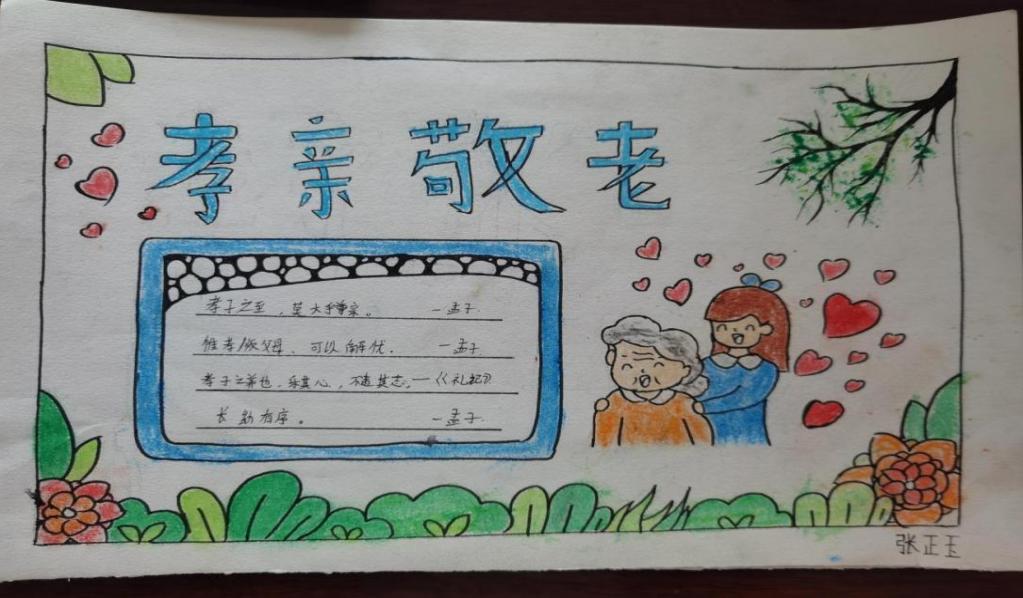 孝亲敬老
孝子之至，莫大乎尊亲。—孟子
惟孝顺父母、可以解忧．—孟子
孝子之养也，乐其心，不违其志。—《礼记》
长幼有序。—孟子
张正玉